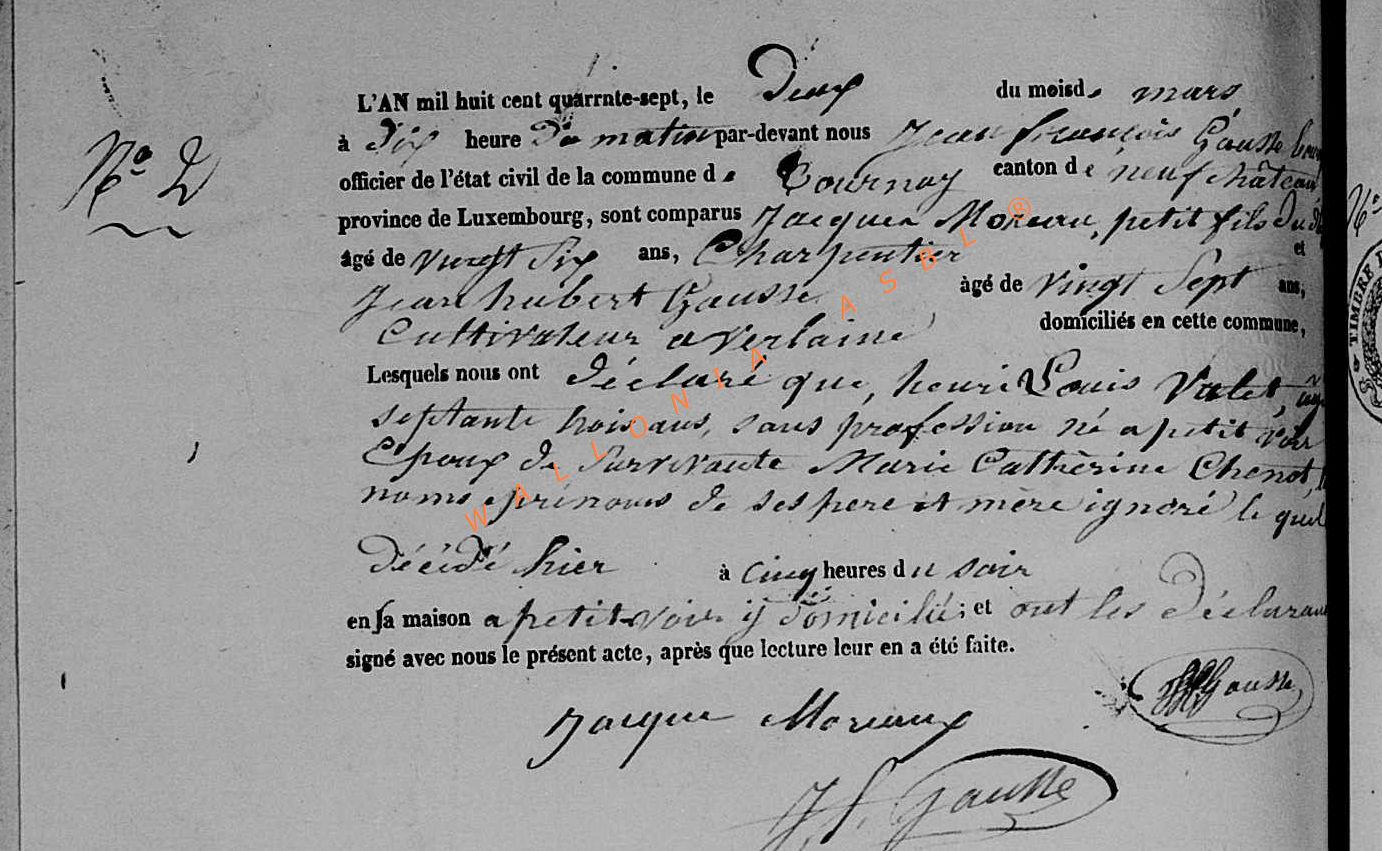 L'AN mil huit cent quarrnte-sept, le Deux du moisde mars
N° 2
à dix heure du matin par-devant nous Jean françois Gausse
officier de l'état civil de la commune de Tournay canton de neufchâteau
province de Luxembourg, sont comparus Jacques Moreau, petit fils du
âgé de vingt Six ans, Charpentier et
Jean hubert Gausse âgé de vingt Sept ans,
Cultivateur a verlaine domiciliés en cette commune,
Lesquels nous ont déclaré que, henri Louis Valet,
septante trois ans, sans profession né a petit voir
Epoux de Survivante Marie Catherine Chenot,
noms prénoms de ses pere et mère ignoré le quel
décédé hier à cinq heures du soir
en sa maison a petit-voir y domicilié; et ont les déclarant
signé avec nous le présent acte, après que lecture leur en a été faite.
Gausse
Jacque Moreaux
J. f. Gausse
WALLONIA ASBL ®
N°
TIMBRE